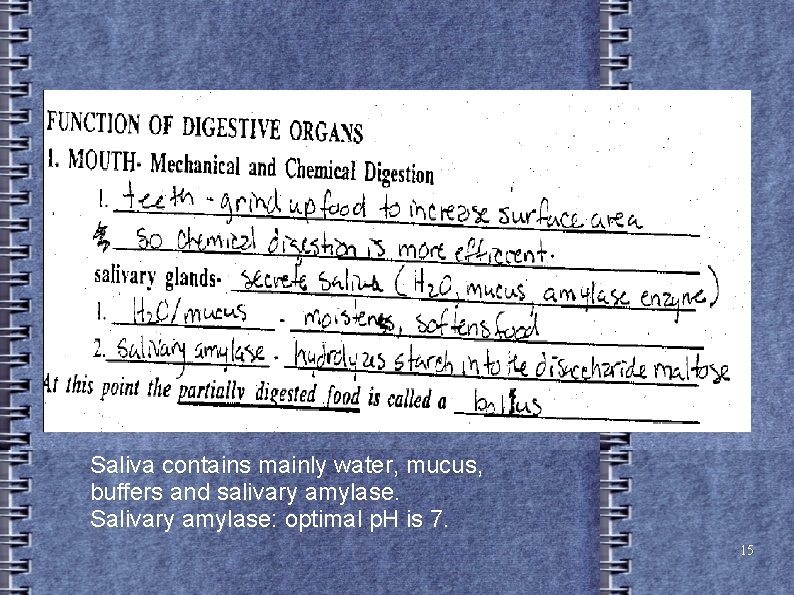 FUNCTION OF DIGESTIVE ORGANS
1. MOUTH- Mechanical and Chemical Digestion
1. teeth - grind up food to increase surface area
so chemical digestion is more efficient.
salivary glands- secrete saliva (H2O, mucus, amylase enzyme)
1. H2O/mucus - moistens, softens food
2. Salivary amylase - hydrolyzes starch into the disaccharide maltose
At this point the partially digested food is called a bolus
Saliva contains mainly water, mucus,
buffers and salivary amylase.
Salivary amylase: optimal pH is 7.
15